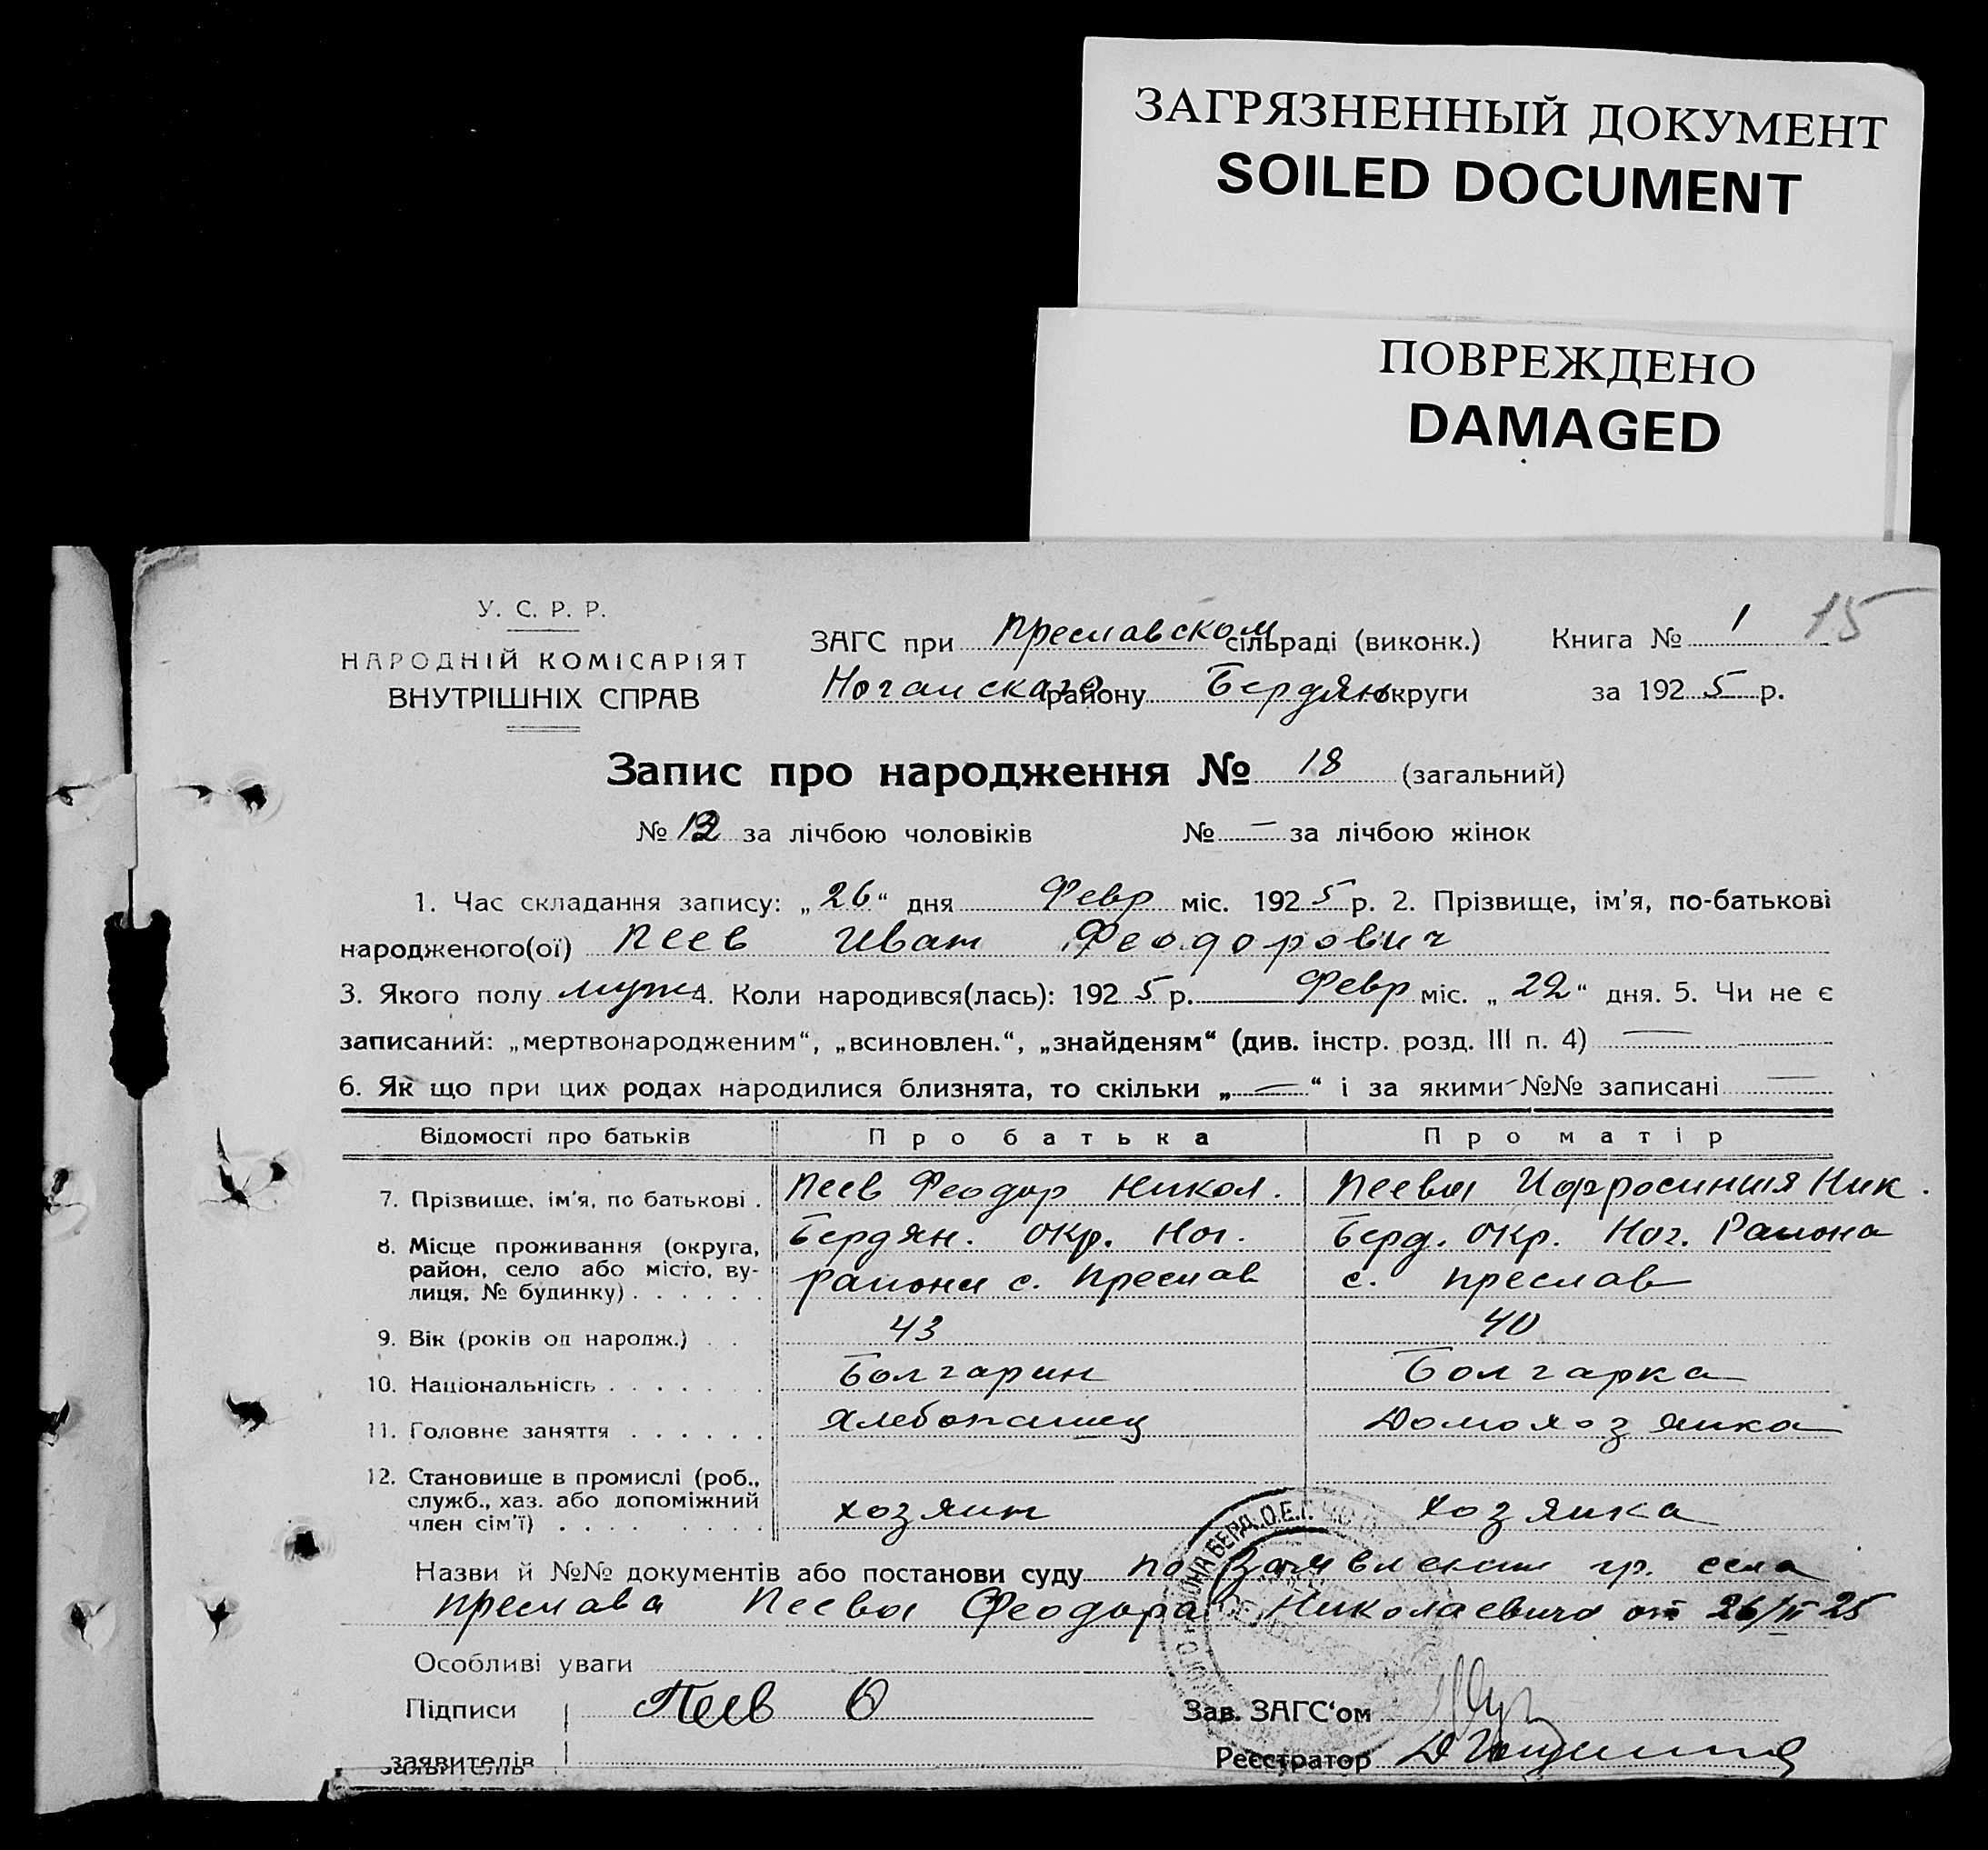 ЗАГРЯЗНЕННЫЙ ДОКУМЕНТ
SOILED DOCUMENT
ПОВРЕЖДЕНО
DAMAGED
У. С. Р. Р.
НАРОДНІЙ КОМІСАРІЯТ
ВНУТРІШНІХ СПРАВ
ЗАГС при Преславском сільраді (виконк.) Книга № 1 15
Ногайского району Бердян округи за 1925 р.
Запис про народження № 18 (загальний)
№ 12 за лічбою чоловіків № — за лічбою жінок
1. Час складання запису: „26“ дня Февр міс. 1925 р. 2. Прізвище, ім'я, по-батькові
народженого(ої) Пеев Иван Феодорович
3. Якого полу муж 4. Коли народився(лась): 1925 р. Февр міс. „22“ дня. 5. Чи не є
записаний: „мертвонародженим“, „всиновлен.“, „знайденям“ (див. інстр. розд. III п. 4) —
6. Як що при цих родах народилися близнята, то скільки „—“ і за якими №№ записані —
Відомості про батьків Про батька Про матір
7. Прізвище, ім'я, по батькові . Пеев Феодор Никол. Пеева Ифросиния Ник.
8. Місце проживання (округа, Бердян. окр. Ног. Берд. окр. Ног. Района
район, село або місто, ву-
лиця, № будинку) . . . . . . района с. Преслав с. Преслав
9. Вік (років од народж.) . . 43 40
10. Національність . . . . . . . Болгарин Болгарка
11. Головне заняття . . . . . . Хлебопашец Домохозяйка
12. Становище в промислі (роб.,
служб., хаз. або допоміжний
член сім'ї) . . . . . . . . хозяин хозяйка
Назви й №№ документів або постанови суду по заявлению гр. села
Преслава Пеева Феодора Николаевича от 26/II 25
Особливі уваги
Підписи Пеев Ѳ Зав. ЗАГС'ом
заявителів Реєстратор